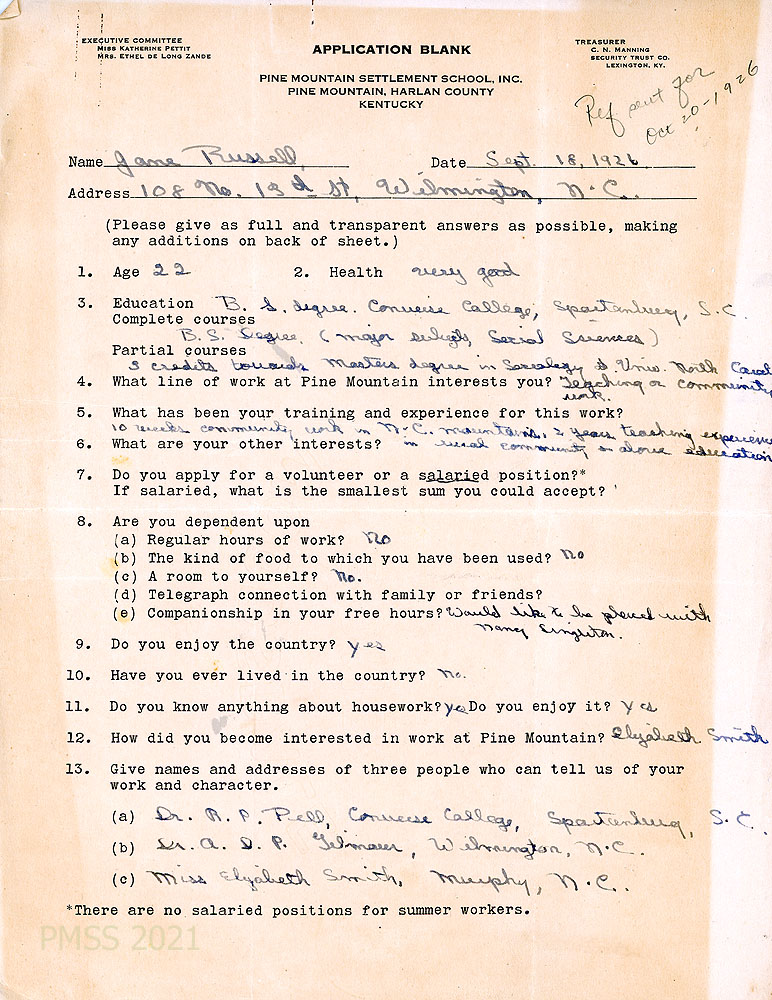 EXECUTIVE COMMITTEE
MISS KATHERINE PETTIT
MRS. ETHEL DE LONG ZANDE
APPLICATION BLANK
TREASURER
C. N. MANNING
SECURITY TRUST CO.
LEXINGTON, KY.
PINE MOUNTAIN SETTLEMENT SCHOOL, INC.
PINE MOUNTAIN, HARLAN COUNTY
KENTUCKY
Ref sent for
Oct 20-1926
Name Jane Russell Date Sept. 18, 1926
Address 108 No. 13th St, Wilmington, N.C.
(Please give as full and transparent answers as possible, making
any additions on back of sheet.)
1. Age 22 2. Health very good
3. Education B. S. degree. Converse College, Spartanburg, S.C.
Complete courses
B.S. Degree (major subjects, Social Sciences)
Partial courses
3 credits towards Masters degree in Sociology Univ. North Carol
4. What line of work at Pine Mountain interests you? Teaching or community
work.
5. What has been your training and experience for this work?
10 weeks community work in N.C. mountains, 2 years teaching experience
6. What are your other interests? in rural community on above education
7. Do you apply for a volunteer or a salaried position?*
If salaried, what is the smallest sum you could accept?
8. Are you dependent upon
(a) Regular hours of work? No
(b) The kind of food to which you have been used? no
(c) A room to yourself? No.
(d) Telegraph connection with family or friends?
(e) Companionship in your free hours? Would like to be placed with
Nancy Singleton.
9. Do you enjoy the country? yes
10. Have you ever lived in the country? No.
11. Do you know anything about housework? yes Do you enjoy it? Yes
12. How did you become interested in work at Pine Mountain? Elizabeth Smith
13. Give names and addresses of three people who can tell us of your
work and character.
(a) Dr. R. P. Pell, Converse College, Spartanburg, S.C.
(b) Dr. A. D. P. Gilmour, Wilmington, N.C.
(c) Miss Elizabeth Smith, Murphy, N.C.
*There are no salaried positions for summer workers.
PMSS 2021